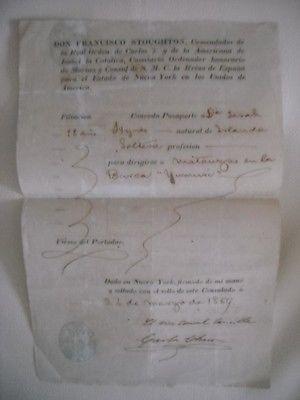 DON FRANCISCO STOUGHTON, Comendador de
la Real Orden de Carlos 3. y de la Americana de
Isabel la Católica, Comisario Ordenador honorario
de Marina y Consul de S. M. C. la Reina de España
para el Estado de Nueva York en los Unidos de
America.
Filiacion Concedo Pasaporte a Da Sarah
natural de Irlanda
Soltera profesion
para dirigirse a Matanzas en la
Barca
Firma del Portador.
Dado en Nueva York, firmado de mi mano
y sellado con el sello de este Consulado á
de Marzo de